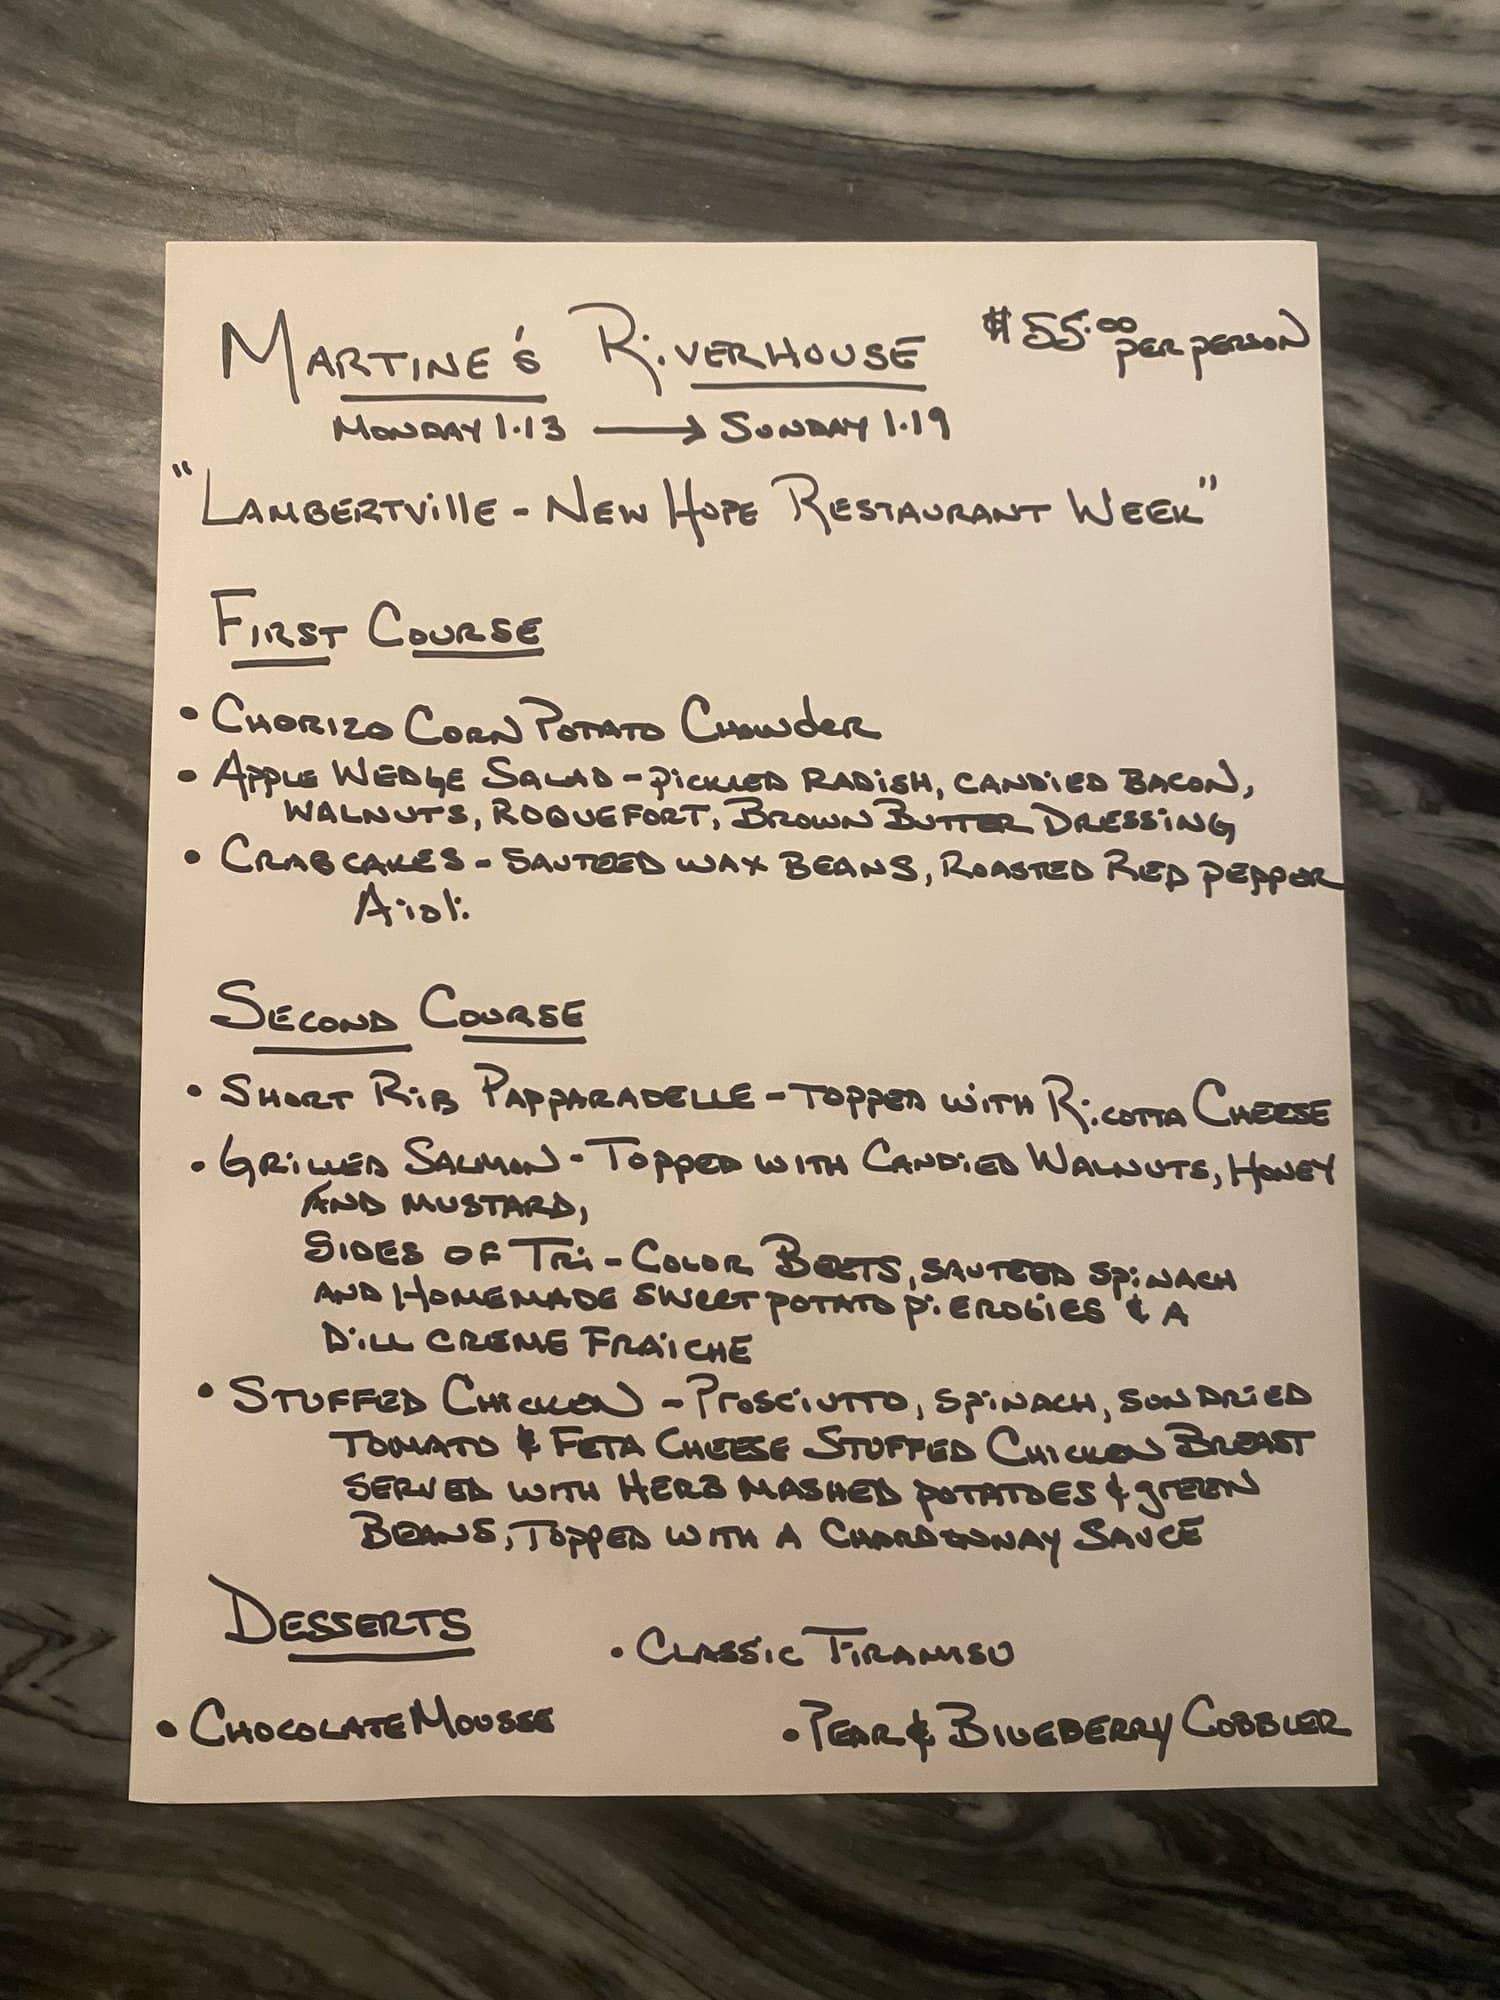 Martine's Riverhouse $55.00 per person
Monday 1.13 → Sunday 1.19
"Lambertville - New Hope Restaurant Week"
First Course
• Chorizo Corn Potato Chowder
• Apple Wedge Salad - pickled radish, candied bacon,
walnuts, Roquefort, Brown Butter Dressing
• Crabcakes - sauteed wax beans, Roasted Red pepper
Aioli
Second Course
• Short Rib Papparadelle - topped with Ricotta Cheese
• Grilled Salmon - Topped with Candied Walnuts, Honey
and mustard,
Sides of Tri-Color Beets, sauteed spinach
and Homemade sweet potato pierogies & a
Dill creme Fraiche
• Stuffed Chicken - Prosciutto, spinach, sundried
tomato & Feta Cheese Stuffed Chicken Breast
served with Herb mashed potatoes & green
Beans, Topped with a Chardonnay Sauce
Desserts
• Classic Tiramisu
• Chocolate Mousse
• Pear & Blueberry Cobbler